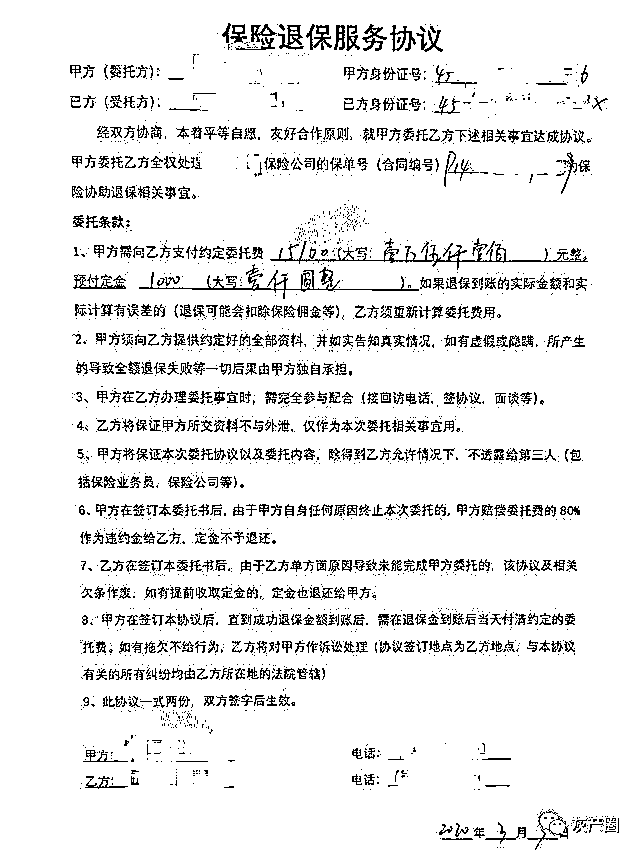 保险退保服务协议
甲方（委托方）： 甲方身份证号：45 6
已方（受托方）： 已方身份证号：45 X
经双方协商，本着平等自愿，友好合作原则，就甲方委托乙方下述相关事宜达成协议。
甲方委托乙方全权处理 保险公司的保单号（合同编号）P14 的保
险协助退保相关事宜。
委托条款：
1、甲方需向乙方支付约定委托费 15100（大写：壹万伍仟壹佰 ）元整。
预付定金 1000 （大写：壹仟圆整 ）。如果退保到账的实际金额和实
际计算有误差的（退保可能会扣除保险佣金等），乙方须重新计算委托费用。
2、甲方须向乙方提供约定好的全部资料，并如实告知真实情况，如有虚假或隐瞒，所产生
的导致全额退保失败等一切后果由甲方独自承担。
3、甲方在乙方办理委托事宜时，需完全参与配合（接回访电话、签协议、面谈等）。
4、乙方将保证甲方所交资料不与外泄，仅作为本次委托相关事宜用。
5、甲方将保证本次委托协议以及委托内容，除得到乙方允许情况下，不透露给第三人（包
括保险业务员，保险公司等）。
6、甲方在签订本委托书后，由于甲方自身任何原因终止本次委托的，甲方赔偿委托费的 80%
作为违约金给乙方，定金不予退还。
7、乙方在签订本委托书后，由于乙方单方面原因导致未能完成甲方委托的，该协议及相关
欠条作废，如有提前收取定金的，定金也退还给甲方。
8、甲方在签订本协议后，直到成功退保金额到账后，需在退保金到账后当天付清约定的委
托费。如有拖欠不给行为，乙方将对甲方作诉讼处理（协议签订地点为乙方地点，与本协议
有关的所有纠纷均由乙方所在地的法院管辖）
9、此协议一式两份，双方签字后生效。
甲方： 电话：
乙方： 电话：
2020 年 3 月 3 日
灰产圈